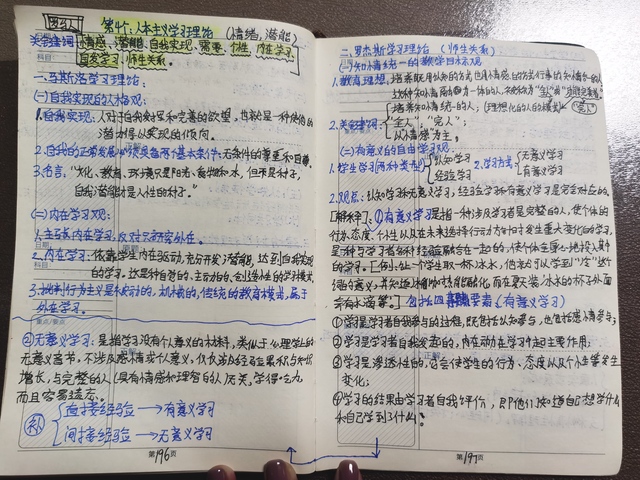 第4节：人本主义学习理论 （情绪，潜能）
关键词：情感、潜能、自我实现、需要、个性、内在学习、
自发学习、师生关系。
一、马斯洛学习理论：
(一)自我实现的人格观：
1.自我实现：人对于自我发挥和完善的欲望，也就是一种使他的
潜力得以实现的倾向。
2.自我的正常发展必须具备两个基本条件：无条件的尊重和自尊。
3.名言，“文化、教育、环境只是阳光、食物和水，但不是种子，
自我潜能才是人性的种子。”
(二)内在学习观：
1.主张内在学习，反对只研究外在。
2.内在学习：依靠学生内在驱动，充分开发潜能，达到自我实现
的学习。这是种自觉的、主动的、创造性的学习模式
3.批判行为主义是被动的、机械的，传统的教育模式，属于
外在学习。
②无意义学习：是指学习没有个人意义的材料，类似于心理学上的
无意义音节，不涉及感情或个人意义，仅仅涉及经验累积与知识
增长，与完整的人（具有情感和理智的人）无关，学得吃力，
而且容易遗忘。
补
直接经验→有意义学习
间接经验→无意义学习
第196页
二、罗杰斯学习理论 （师生关系）
(一)知情统一的教学目标观
1.教育理想：培养既用认知的方式也用情感的方式行事的知情合一的人
“全人”或“功能完善者”
培养知情统一的人；（理想化的人的模式）“完人”
2.关键词：“全人”，“完人”；
以情感为主。
(二)有意义的自由学习观
1.学生学习(两种类型) 认知学习 经验学习
2.学习方式： 无意义学习 有意义学习
2.观点：认知学习和无意义学习，经验学习和有意义学习是完全对应的。
[解释]：①有意义学习是指一种涉及学习者是完整的人，使个体的
行为、态度、个性以及在未来选择行动方针时发生重大变化的学习，
是一种与学习者各种经验融合在一起的，使个体全身心地投入其中
的学习。[例：让一个学生取一杯冰水，他就可以学到“冷”这个
词的意义，并知道冰遇热能融化，而在夏天装冰水的杯子外面
会有水滴等] 包括四要素（有意义学习）
①学习是学习者自我参与的过程，既包括认知参与，也包括情感参与；
②学习是学习者自我发起的，内在动力在学习中起主要作用；
③学习是渗透性的，它会使学生的行为、态度以及个性等发生
变化；
④学习的结果由学习者自我评价，即他们知道自己想学什么
和自己学到了什么。
第197页